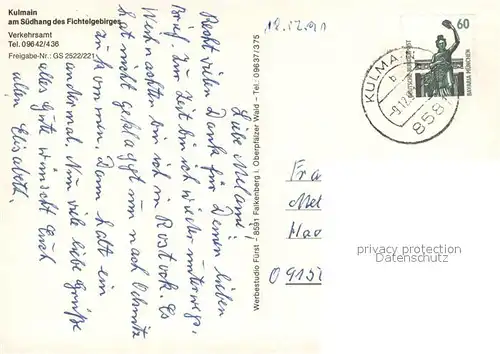 Kulmain
am Südhang des Fichtelgebirges
Verkehrsamt
Tel. 09642/436
Freigabe-Nr.: GS 2522/221
12.12.91
Liebe Melanie,
Recht vielen Dank für Deinen lieben
Brief. Zur Zeit bin ich wieder unterwegs,
Weihnachten bin ich in Rostock. Es
hat nicht geklappt nun nach Chemnitz
zu kommen. Dann halt ein
andermal. Nun viele liebe Grüße
alles Gute wünscht Euch
allen Elisabeth.
Werbestudio Fürst - 8591 Falkenberg i. Oberpfälzer Wald - Tel.: 09637/375
60
DEUTSCHE BUNDESPOST
BAVARIA MÜNCHEN
KULMA
b
8581
Fra
Mel
O 915
privacy protection
Datenschutz